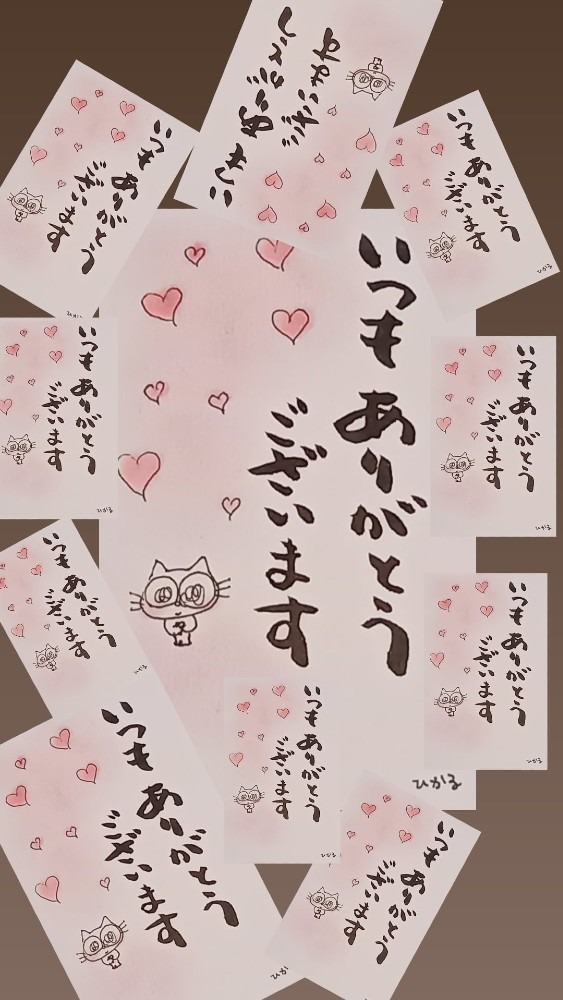 いつも ありがとう
ございます
いつも ありがとう
ございます
いつも ありがとう
ございます
ひかる
いつも ありがとう
ございます
ひかる
いつも ありがとう
ございます
ひかる
いつも ありがとう
ございます
ひかる
いつも ありがとう
ございます
ひかる
いつも ありがとう
ございます
ひかる
いつも ありがとう
ございます
ひか
いつも ありがとう
ございます
ひかる
いつも ありがとう
ございます